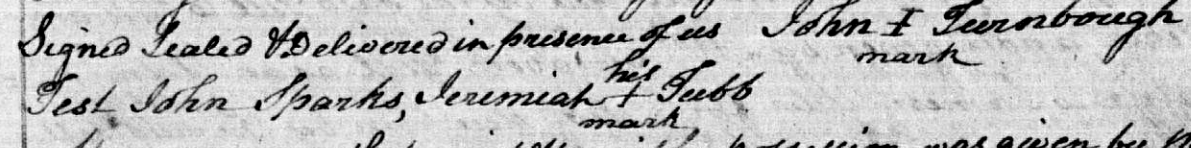 Signed Sealed & Delivered in presence of us John I Turnbough
mark
his
Test John Sparks, Jeremiah + Tubb
mark
possession was given by